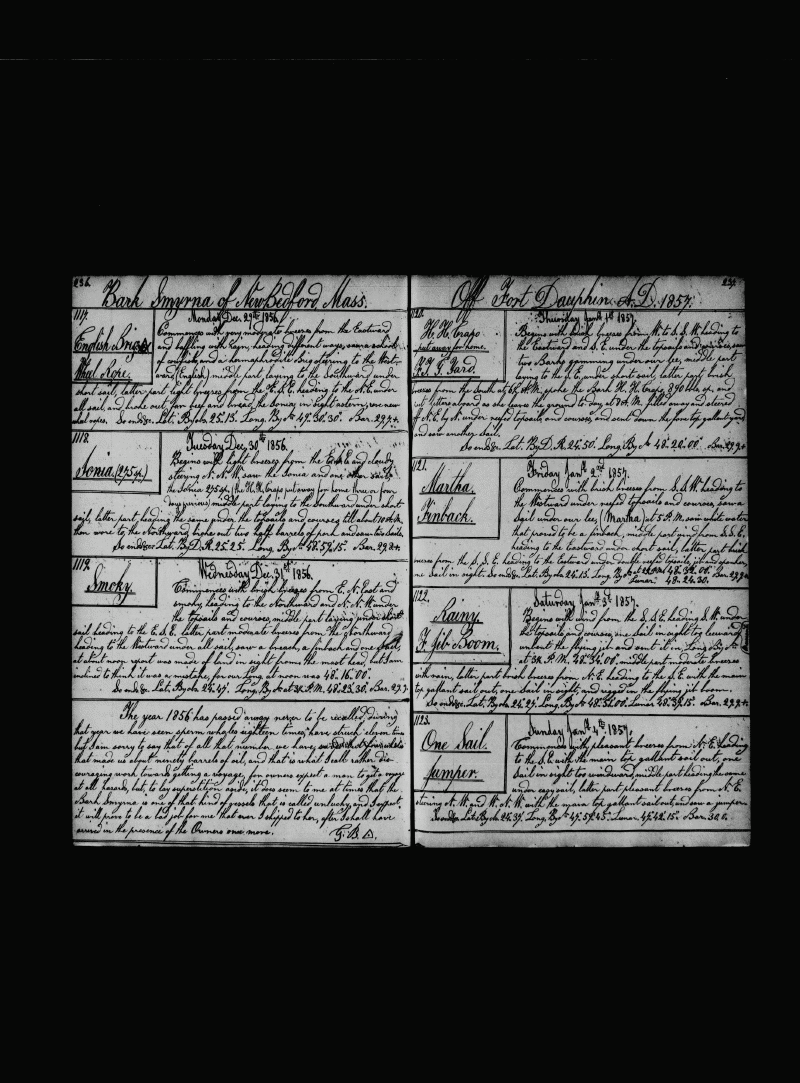 236.
Bark Smyrna of New Bedford Mass.
1117.
English Brig
What Rope.
Monday Dec. 29th 1856.
Commences with very moderate breezes from the Eastward
and baffling with rain, heading different ways, saw a school
of and a hermaphrodite brig steering to the West-
ward (English), middle part laying to the Southward under
short sail, latter part light breezes from the N.E. heading to the N.E. under
all sail, and broke out for beef and bread the Sonia in sight astern, wove new
. So ends &c. Lat. By ob. 25.13. Long. By Ar 47.30.30. Bar. 29.
1118.
Sonia (275 sp.)
Tuesday Dec. 30th 1856.
Begins with light breezes from the and cloudy
steering N.N.W. saw the Sonia and one other sail,
the Sonia 275 sp. (the H.H. Crapo put away for home three or four
days previous) middle part laying to the Southward under short
sail, latter part, heading the same under the topsails and courses till about 10 A.M.
then wore to the Northward, broke out two half barrels of pork and saw two sails,
So ends &c. Lat. By D.R. 25.25. Long. By Ar 48.57.15. Bar. 29.
1119.
Smoky.
Wednesday Dec. 31st 1856.
Commences with brisk breezes from E.N. East and
smoky heading to the Northward and N.N.W. under
the topsails and courses, middle part laying under short
sail heading to the E.S.E. latter part moderate breezes from the Northward
heading to the Westward under all sail, saw a breach, a finback and one sail,
at about noon report was made of land in sight from the mast head, but I am
inclined to think it was a mistake, for our Long. at noon was 48.16.00.
So ends &c. Lat. By ob. 24.47. Long. By Ar at 3½ P.M. 48.23.30. Bar. 29.
The year 1856 has passed away never to be recalled, during
that year we have seen sperm whales eighteen times, have struck eleven times
but I am sorry to say that of all that number we have saved but four whales
that made us about ninety barrels of oil, and that is what I call rather dis-
couraging work towards getting a voyage, for owners expect a man to get a voyage
at all hazards, but, to lay superstition aside, it does seem to me at times that the
Bark Smyrna is one of that kind of vessels that is called unlucky, and I expect,
it will prove to be a bad job for me that ever I shipped in her, after I shall have
arrived in the presence of the Owners once more.
237.
Off Fort Dauphin A.D. 1857.
1120.
H.H. Crapo
put away for home.
Thursday Jany 1st 1857.
Begins with brisk breezes from N. to S.S.W. heading to
the Eastward and S.E. under the topsails and courses, saw
two Barks gamming under our lee, middle part
laying to the S.E. under short sail, latter part brisk
breezes from the South at 6½ A.M. spoke the Bark H.H. Crapo, 890 bbls sp. and
put letters aboard as she leaves the ground to day at 8 A.M. filled away and steered
off N.E. by N. under reefed topsails, and courses, and sent down the fore top gallant yard
and saw another sail.
So ends &c. Lat. By D.R. 24.50. Long. By Ar 48.20.00. Bar. 29.
1121.
Martha.
Finback.
Friday Jany 2nd 1857.
Commences with brisk breezes from S.S.W. heading to
the Westward under reefed topsails and courses, saw a
Sail under our lee, (Martha) at 5 P.M. saw white water
that proved to be a finback, middle part wind from S.S.E.
heading to the Eastward under short sail, latter part brisk
breezes from the S.S.E. heading to the Eastward under double reefed topsails, jib and spanker,
one Sail in sight. So ends &c. Lat. By ob. 24.13. Long. By Ar 48.32.00. Bar. 29.
Lunar. 48.24.30.
1122.
Rainy.
F. Jib-Boom.
Saturday Jany 3rd 1857.
Begins with wind from the S.S.E. heading S.W. under
the topsails and courses, one Sail in sight to leeward,
unbent the flying jib and sent it in, Long. By Ar
at 3½ P.M. 48.34.00. middle part moderate breezes
with rain, latter part brisk breezes from N.E. heading to the S.E. with the main
top gallant sail out, one Sail in sight, and rigged in the flying jib boom.
So ends &c. Lat. By ob. 24.29. Long. By Ar 48.32.00. Lunar. 48.39.15. Bar. 29.
1123.
One Sail.
Jumper.
Sunday Jany 4th 1857.
Commences with pleasant breezes from N.E. heading
to the S.E. with the main top gallant sail out, one
Sail in sight to windward, middle part heading the same
under easy sail, latter part pleasant breezes from N.E.
steering N.W. and W.N.W. with the main top gallant sail out, and saw a jumper.
So ends &c. Lat. By ob. 24.37. Long. By Ar 47.57.45. Lunar. 47.42.15. Bar. 30.0.